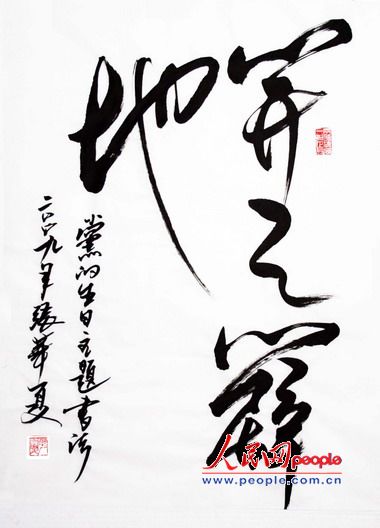 開天闢
地
黨的生日主題書法
二〇〇九年張華夏
人民网 people
www.people.com.cn